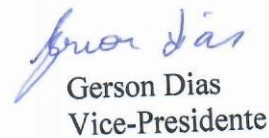 Gerson Dias
Gerson Dias
Vice-Presidente